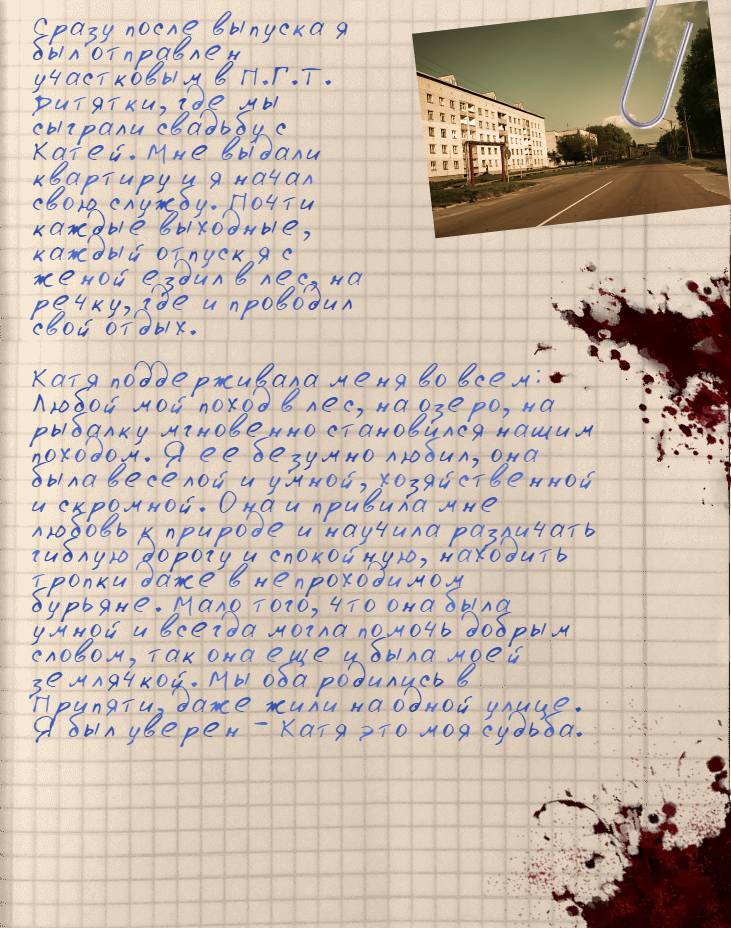 Сразу после выпуска я
был отправлен
участковым в П.Г.Т.
Ритятки, где мы
сыграли свадьбу с
Катей. Мне выдали
квартиру и я начал
свою службу. Почти
каждые выходные,
каждый отпуск я с
женой ездил в лес, на
речку, где и проводил
свой отдых.
Катя поддерживала меня во всем:
Любой мой поход в лес, на озеро, на
рыбалку мгновенно становился нашим
походом. Я ее безумно любил, она
была веселой и умной, хозяйственной
и скромной. Она и привила мне
любовь к природе и научила различать
гиблую дорогу и спокойную, находить
тропки даже в непроходимом
бурьяне. Мало того, что она была
умной и всегда могла помочь добрым
словом, так она еще и была моей
землячкой. Мы оба родились в
Припяти, даже жили на одной улице.
Я был уверен - Катя это моя судьба.